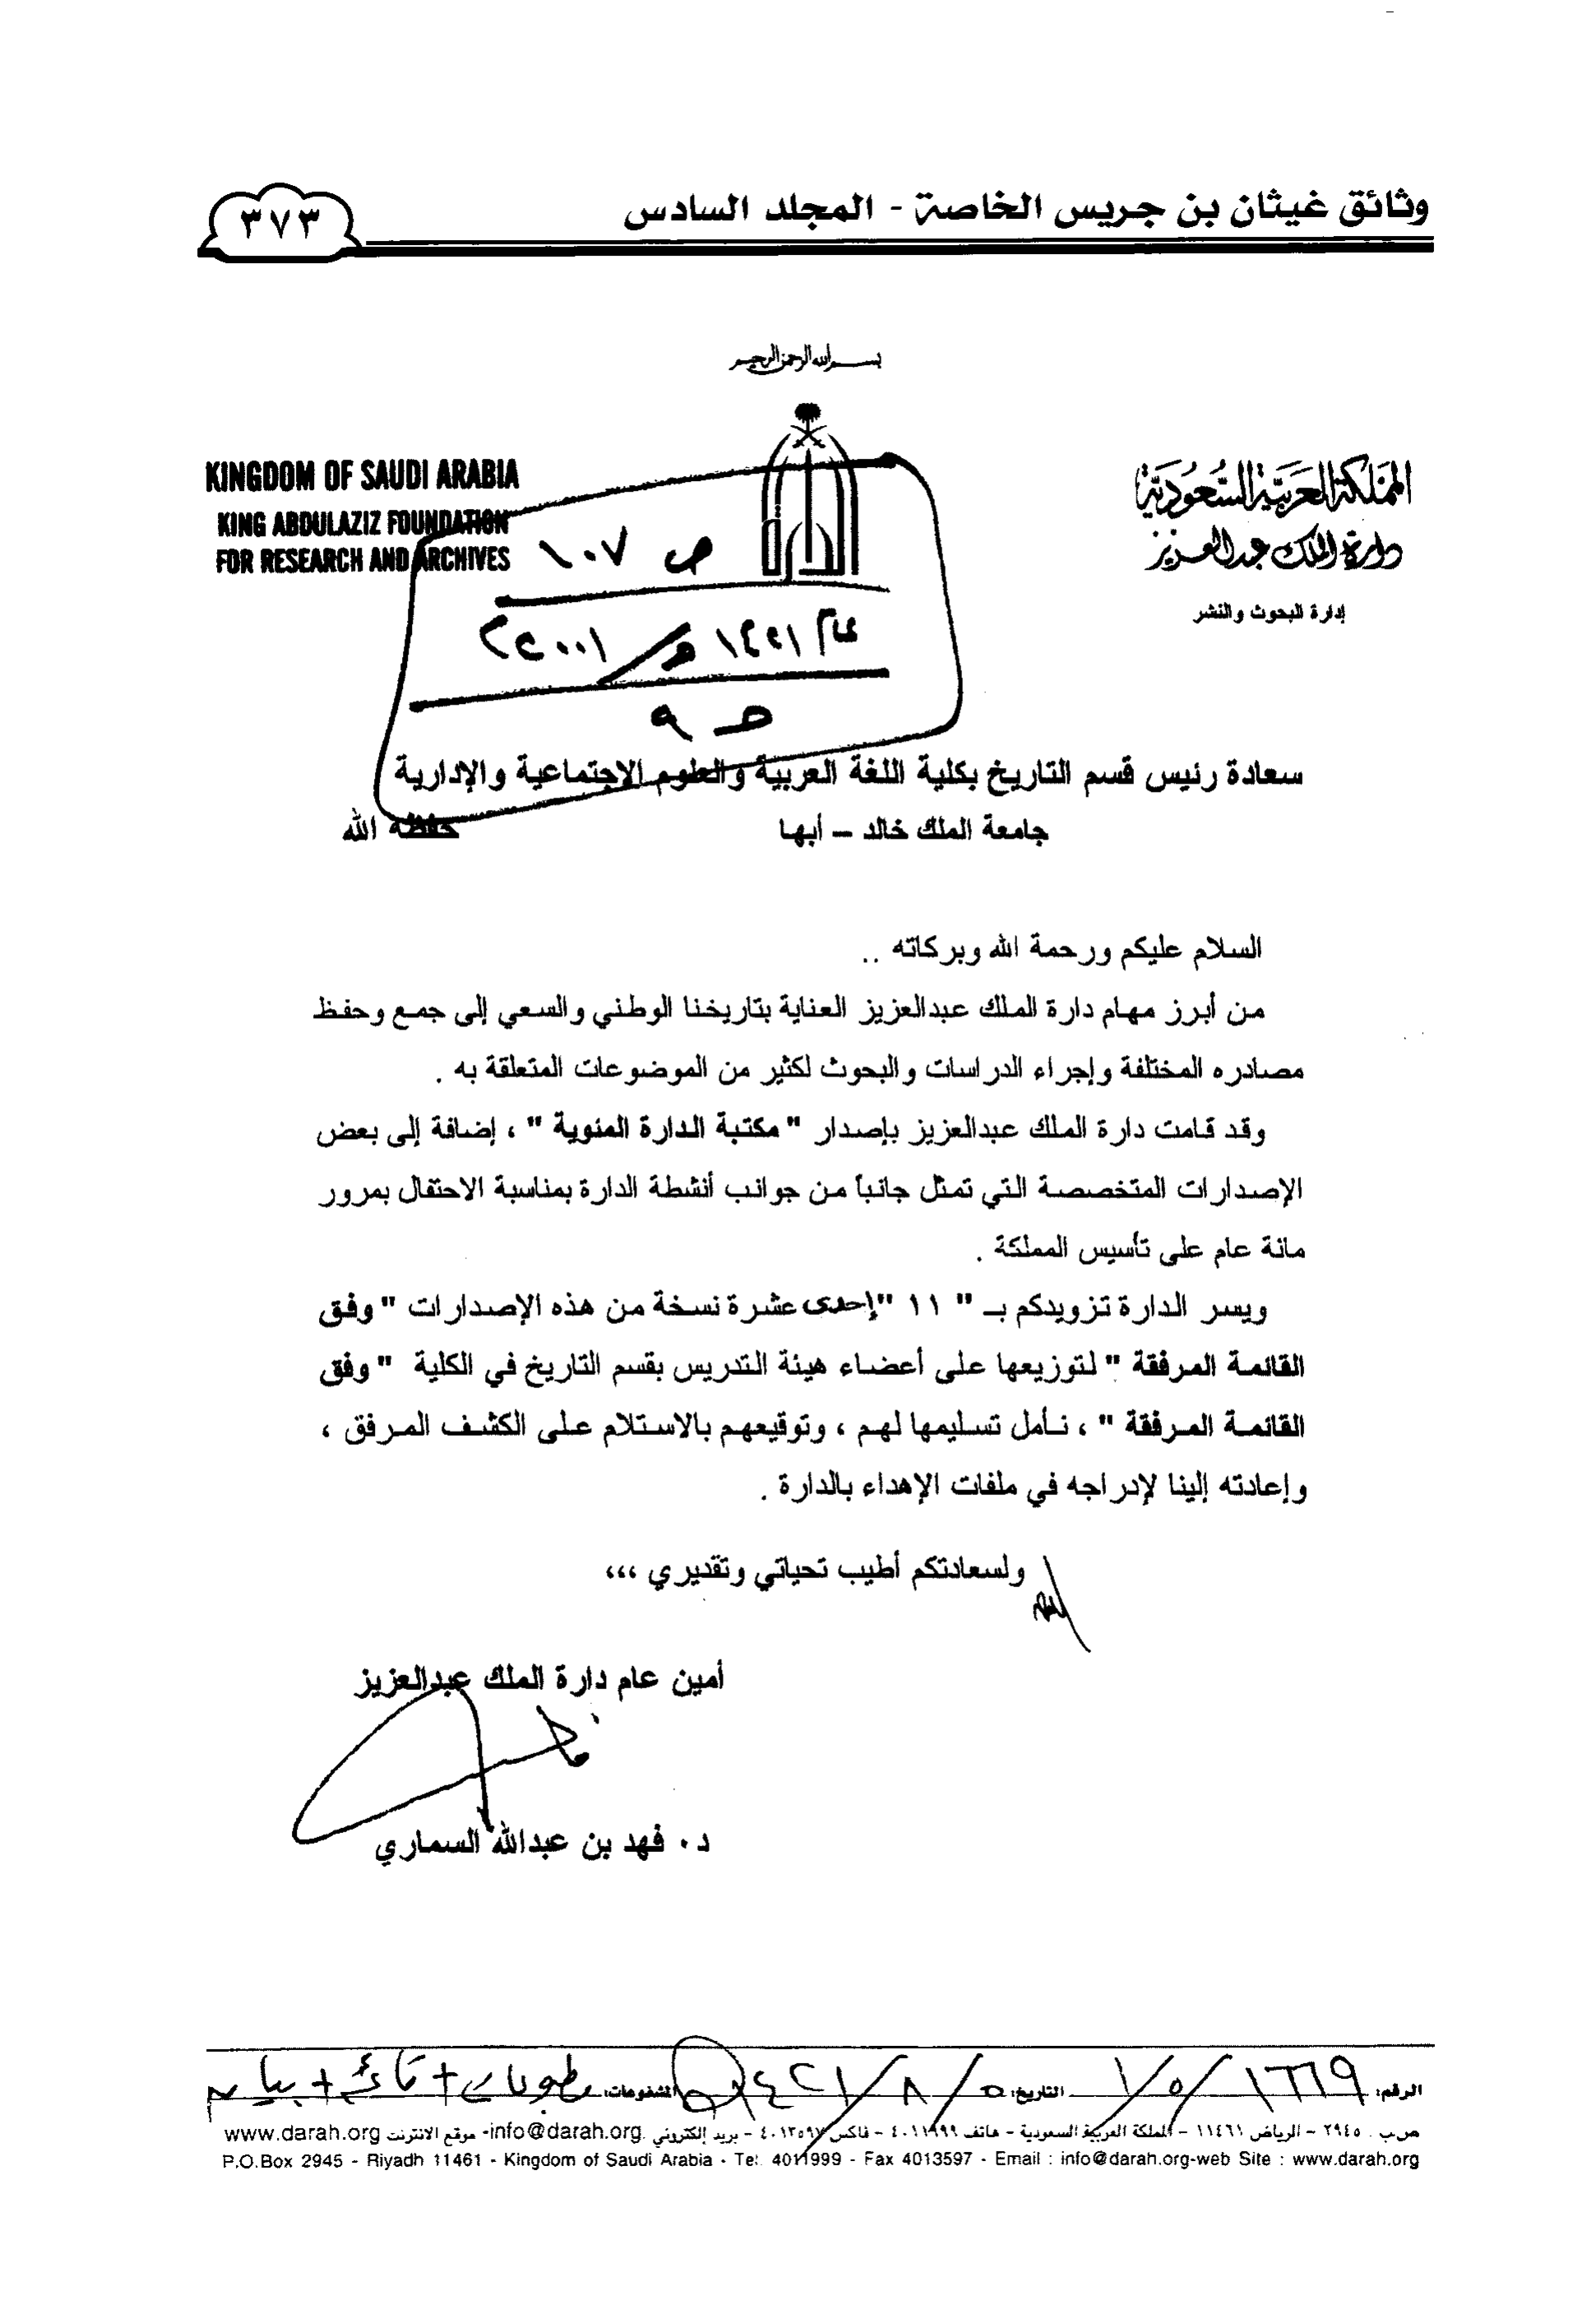 وثائق غيثان بن جريس الخاصة - المجلد السادس
٣٧٣
بسم الله الرحمن الرحيم
المملكة العربية السعودية
دارة الملك عبدالعزيز
إدارة البحوث والنشر
KINGDOM OF SAUDI ARABIA
KING ABDULAZIZ FOUNDATION
FOR RESEARCH AND ARCHIVES
ص ١٠٧
عام ١٤٢١هـ / ٢٠٠١م
ص ٩
سعادة رئيس قسم التاريخ بكلية اللغة العربية والعلوم الاجتماعية والإدارية
جامعة الملك خالد – أبها حفظه الله
السلام عليكم ورحمة الله وبركاته ..
من أبرز مهام دارة الملك عبدالعزيز العناية بتاريخنا الوطني والسعي إلى جمع وحفظ
مصادره المختلفة وإجراء الدراسات والبحوث لكثير من الموضوعات المتعلقة به .
وقد قامت دارة الملك عبدالعزيز بإصدار " مكتبة الدارة المئوية " ، إضافة إلى بعض
الإصدارات المتخصصة التي تمثل جانباً من جوانب أنشطة الدارة بمناسبة الاحتفال بمرور
مائة عام على تأسيس المملكة .
ويسر الدارة تزويدكم بـ " ١١ "إحدى عشرة نسخة من هذه الإصدارات " وفق
القائمة المرفقة " لتوزيعها على أعضاء هيئة التدريس بقسم التاريخ في الكلية " وفق
القائمة المرفقة " ، نأمل تسليمها لهم ، وتوقيعهم بالاستلام على الكشف المرفق ،
وإعادته إلينا لإدراجه في ملفات الإهداء بالدارة .
ولسعادتكم أطيب تحياتي وتقديري ،،،
أمين عام دارة الملك عبدالعزيز
د. فهد بن عبدالله السماري
الرقم: ١٦٦٩/٥/١ التاريخ: ٥/٨/١٤٢١ المشفوعات: مطبوعات + قائمة + بيان
ص.ب. ٢٩٤٥ – الرياض ١١٤٦١ – المملكة العربية السعودية – هاتف ٤٠١١٩٩٩ – فاكس ٤٠١٣٥٩٧ – بريد إلكتروني .info@darah.org- موقع الانترنت www.darah.org
P.O.Box 2945 - Riyadh 11461 - Kingdom of Saudi Arabia - Tel. 4011999 - Fax 4013597 - Email : info@darah.org-web Site : www.darah.org